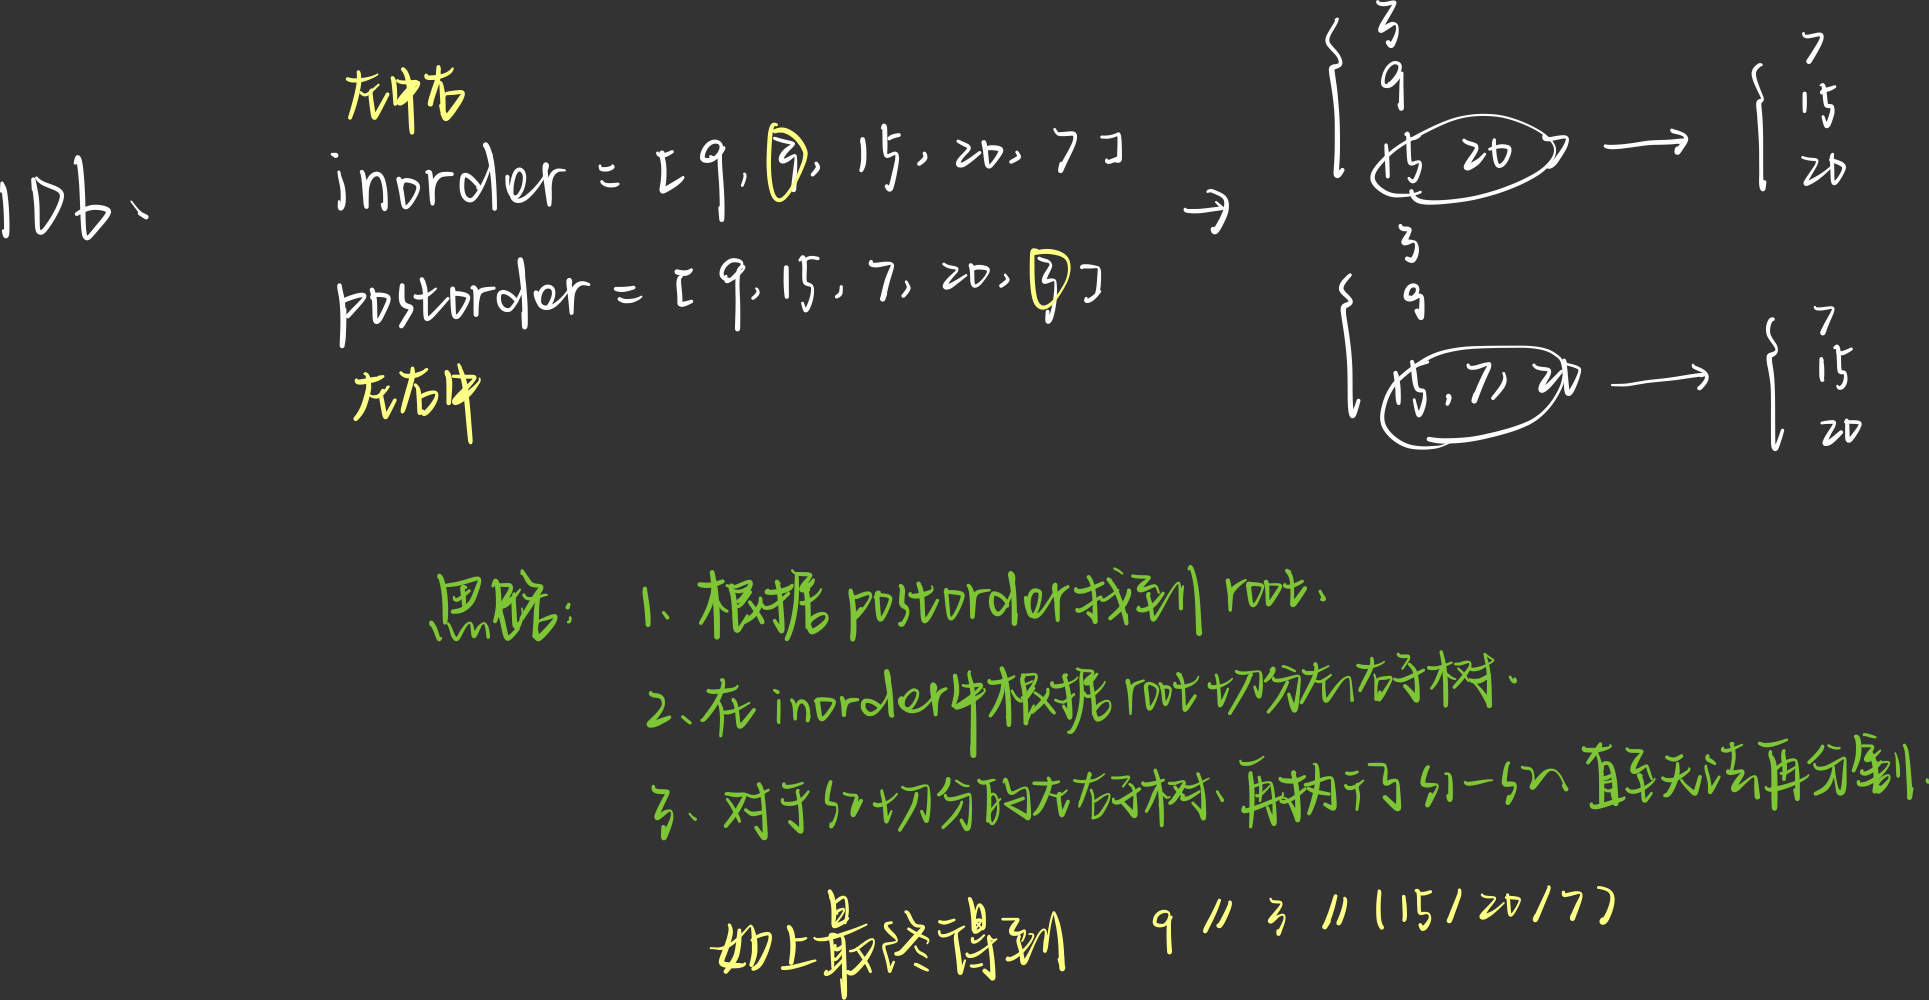 左中右
106、 inorder = [9, 3, 15, 20, 7] →
postorder = [9, 15, 7, 20, 3]
左右中
3
9
15 20 7 →
7
15
20
3
9
15, 7, 20 →
7
15
20
思路: 1、根据 postorder找到 root、
2、在 inorder中根据 root 切分左、右子树、
3、对于S2切分的左右子树、再执行 S1-S2、直至无法再分割、
如上最终得到 9 // 3 // (15/20/7)